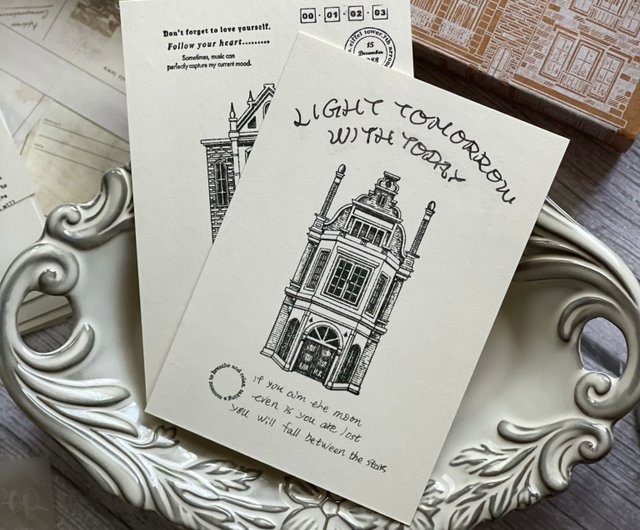 Don't forget to love yourself.
Follow your heart.........
Sometimes, music can
perfectly capture my current mood.
00 01 02 03
15
December
LIGHT TOMORROW
WITH TODAY
a moment to breathe and relax, taking
if you aim the moon
even is you are lost
you will fall between the stars
will